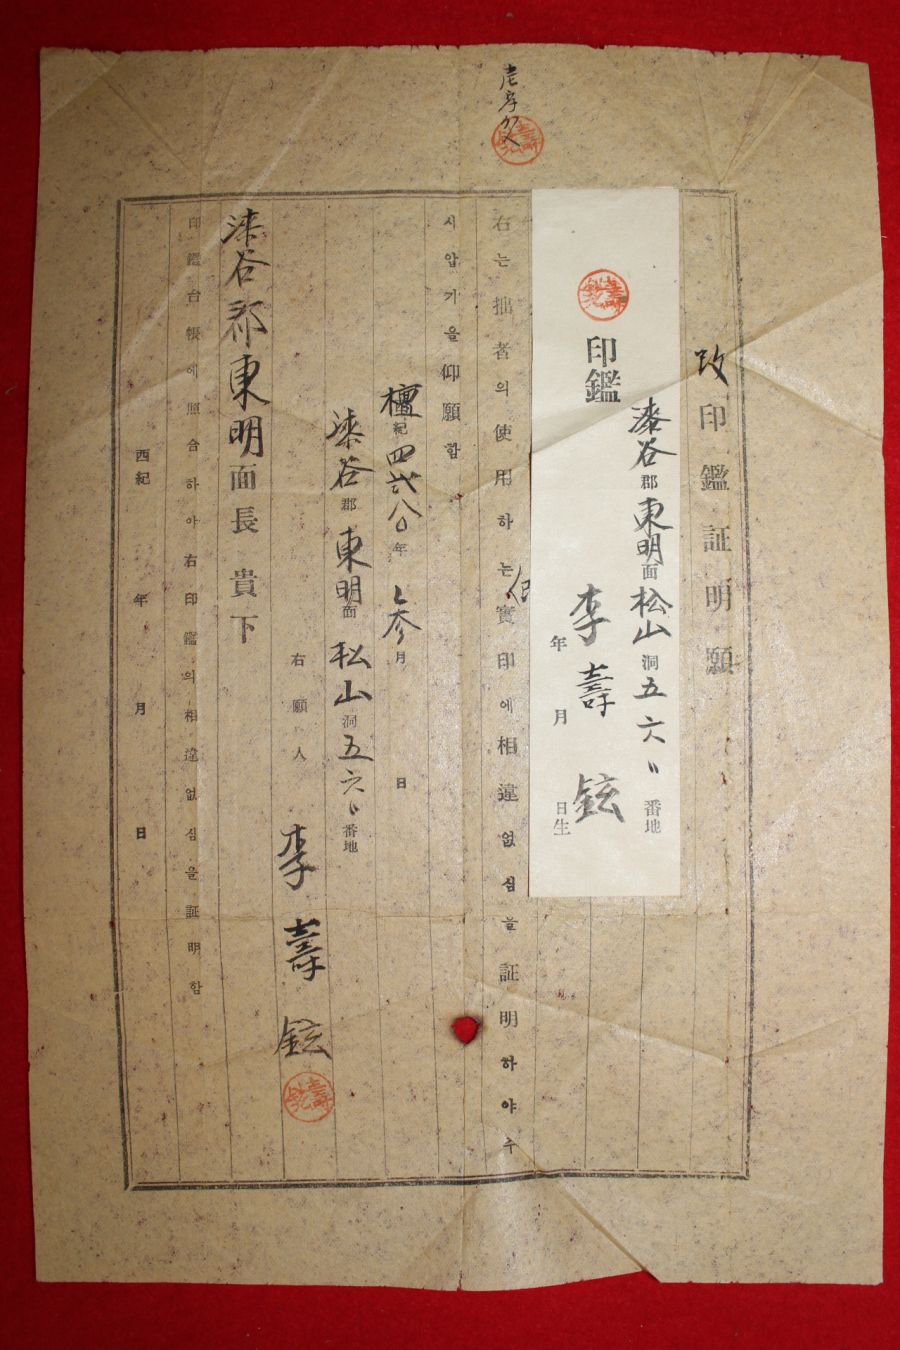 改印鑑証明願
漆谷郡東明面松山洞五六〃番地
印鑑
李壽鉉
年 月 日生
右는拙者의使用하는實印에相違없심을証明하야주
시압기을仰願함
檀紀四贰八〇年 참月 日
漆谷郡東明面松山洞五六〃番地
右願人 李壽鉉
漆谷郡東明面長 貴下
印鑑台帳에照合하아右印鑑의相違없심을証明함
西紀 年 月 日